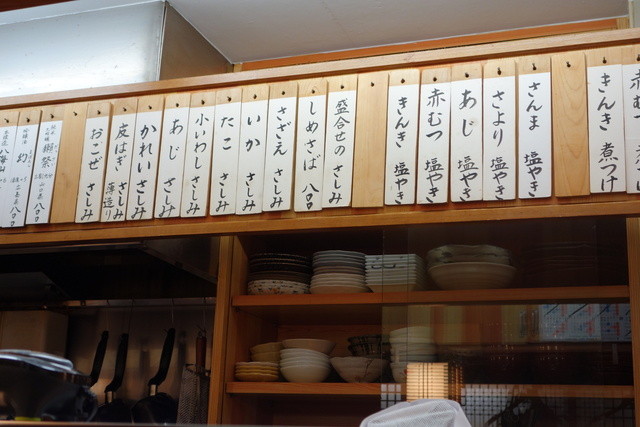 赤むつ
きんき 煮つけ
さんま 塩やき
さより 塩やき
あじ 塩やき
赤むつ 塩やき
きんき 塩やき
盛合せのさしみ
しめさば 八〇〇
さざえ さしみ
いか さしみ
たこ さしみ
小いわし さしみ
あじ さしみ
かれい さしみ
皮はぎ さしみ 薄造り
おこぜ さしみ
獺祭 山口県 八〇〇
幻 広島 八〇〇
八海山